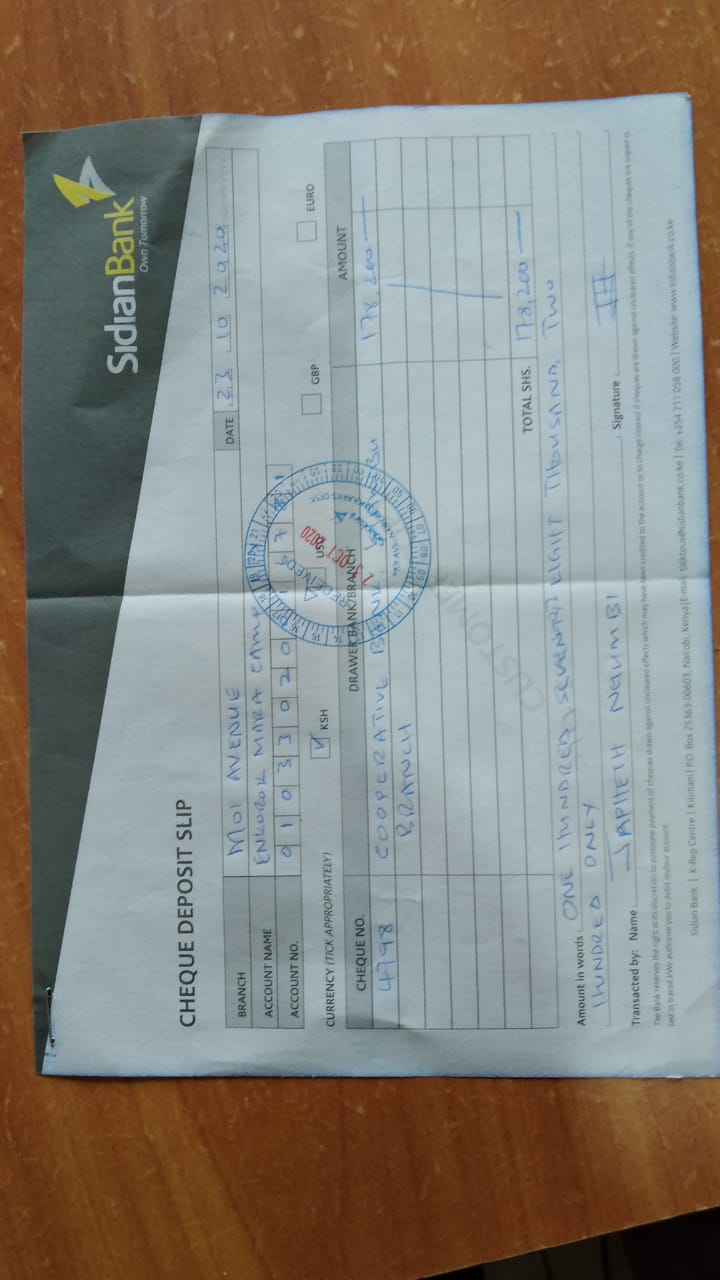 SidianBank
Own Tomorrow
CHEQUE DEPOSIT SLIP
BRANCH MOI AVENUE DATE 23 10 2020
ACCOUNT NAME ENKOROK MARA CAMP
ACCOUNT NO. 01033020
CURRENCY (TICK APPROPRIATELY) KSH US GBP EURO
CHEQUE NO. DRAWER BANK/BRANCH AMOUNT
4798 COOPERATIVE BANK 178,200
BRANCH
TOTAL SHS. 178,200
Amount in words ONE HUNDRED, SEVENTY EIGHT THOUSAND, TWO
HUNDRED ONLY
Transacted by: Name JAPHETH NGUMBI Signature
The Bank reserves the right at its discretion to postpone payment of cheques drawn against uncleared effects which may have been credited to the account or to charge interest if cheques are drawn against uncleared effects. If any of the cheques are unpaid or
lost in transit I/We authorise you to debit my/our account.
Sidian Bank | K-Rep Centre | Kilimani | P.O. Box 25363-00603, Nairobi, Kenya | E-mail: talktous@sidianbank.co.ke | Tel: +254 711 058 000 | Website: www.sidianbank.co.ke
RECEIVED
23 OCT 2020
CUSTOME